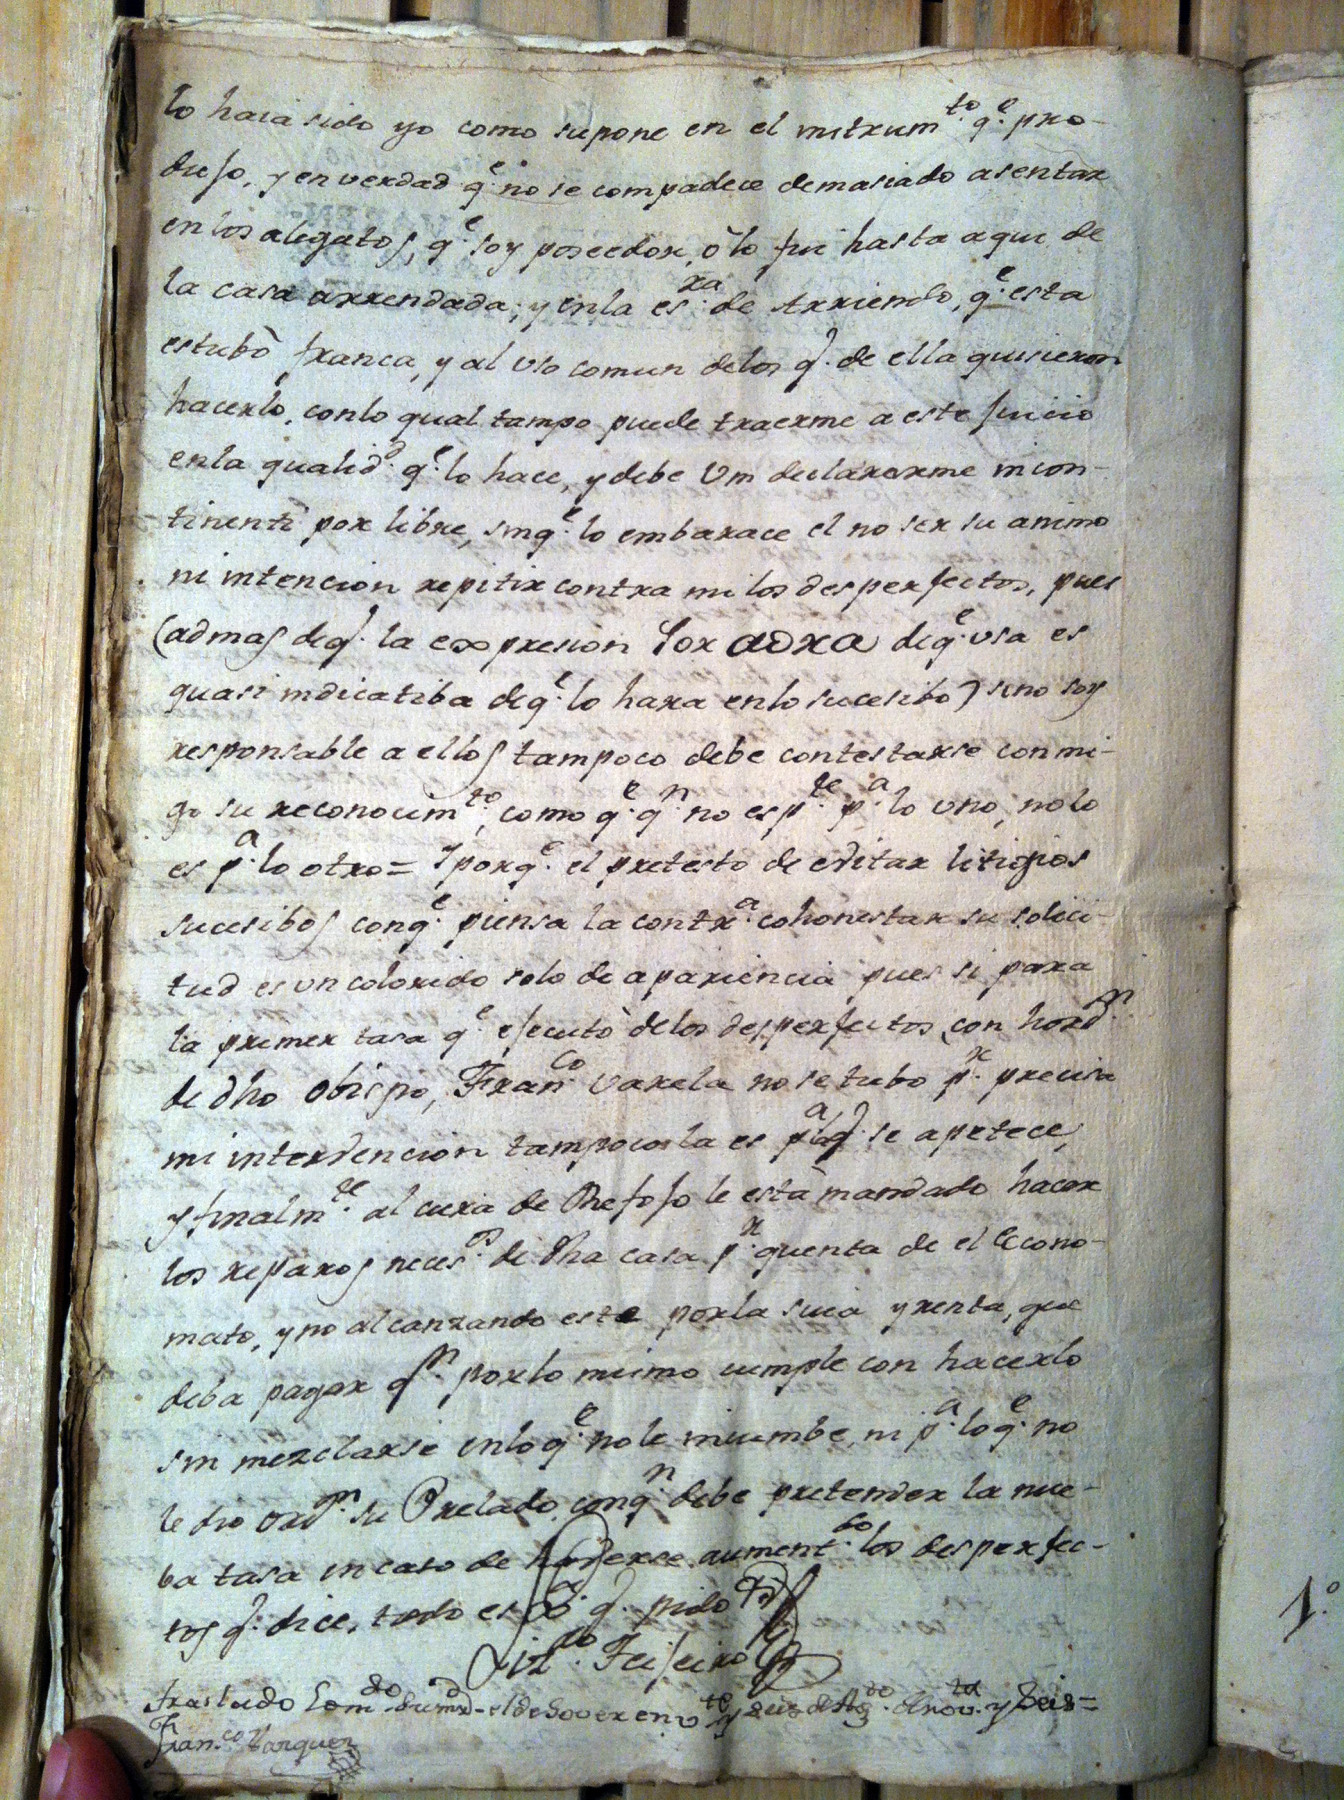 lo haia sido yo como supone en el instrumto. qe. pro-
dujo, y en verdad qe. no se compadece demasiado asentar
en los alegatos, qe. soy poseedor, ò lo fui hasta aqui de
la casa arrendada; y en la esra. de Arriendo, qe. esta
estubò franca, y al uso comun de los q. de ella quisieron
hacerlo, con lo qual tampo puede traerme a este juicio
en la qualidd. qe. lo hace, y debe Vm declararme incon-
tinenti por libre, sin qe. lo embarace el no ser su animo
ni intencion repitir contra mi los desperfectos, pues
(admas de q. la expresion Por aora de qe. usa es
quasi indicatiba de qe. lo hara en lo sucesibo) si no soy
responsable a ellos tampoco debe contestarse conmi-
go su reconocimto., como qe. qn. no es pte. pa. lo uno, no lo
es pa. lo otro = Y porqe. el pretesto de evitar litigios
sucesibos con qe. piensa la contra. cohonestar su solici-
tud es un colorido solo de apariencia pues si para
la primer tasa qe. ejecutò de los desperfectos, con hordn.
de dho Obispo, Franco. Varela no se tubo pr. precisa
mi intervencion tampoco la es pa. la q. se apetece,
y finalmte. al cura de Refojo le està mandado hacer
los reparos neces. de dha casa pr. quenta de el Econo-
mato, y no alcanzando este por la suia y renta, que
deba pagar qn. por lo mismo cumple con hacerlo
sin mezclarse en lo qe. no le incumbe, ni pa. lo qe. no
le dio ordn. su Prelado, con qn. debe pretender la nue-
ba tasa en caso de haverse aumentdo. los desperfec-
tos q. dice, todo es q. pido
Lizdo. Feijeiro
Traslado en vte. y seis de Agto. de nov.ta y seis =
Fran.co Varquez
1.o